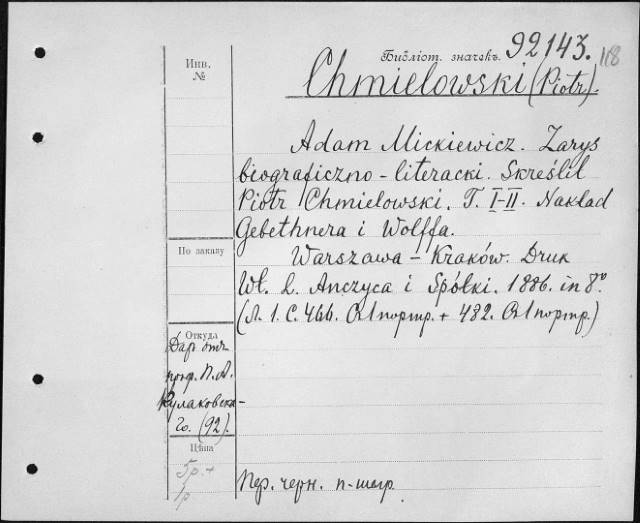 Библіот. значекъ. 92143.
118
Инв.
№
Chmielowski (Piotr).
Adam Mickiewicz. Zarys
biograficzno-literacki. Skreślił
Piotr Chmielowski. T. I-II. Nakład
Gebethnera i Wolffa.
По заказу
Warszawa-Kraków. Druk
Wł. L. Anczyca i Spółki. 1886. in 8°
(Л. 1. С. 466. Cъ 1 портр. + 482. Cъ 1 портр.)
Откуда
Даръ отъ
проф. П. А.
Кулаковска-
го. (92).
Цѣна
5р. +
1р
Пер. черн. п-шагр.